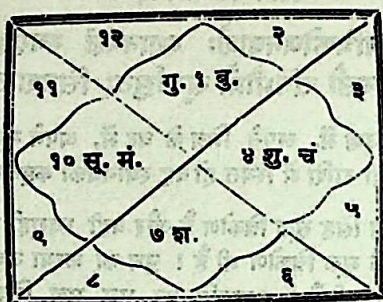 १२ २
११ गु. १ बु. ३
१० सू. मं. ४ शु. चं
९ ७ श. ५
८ ६